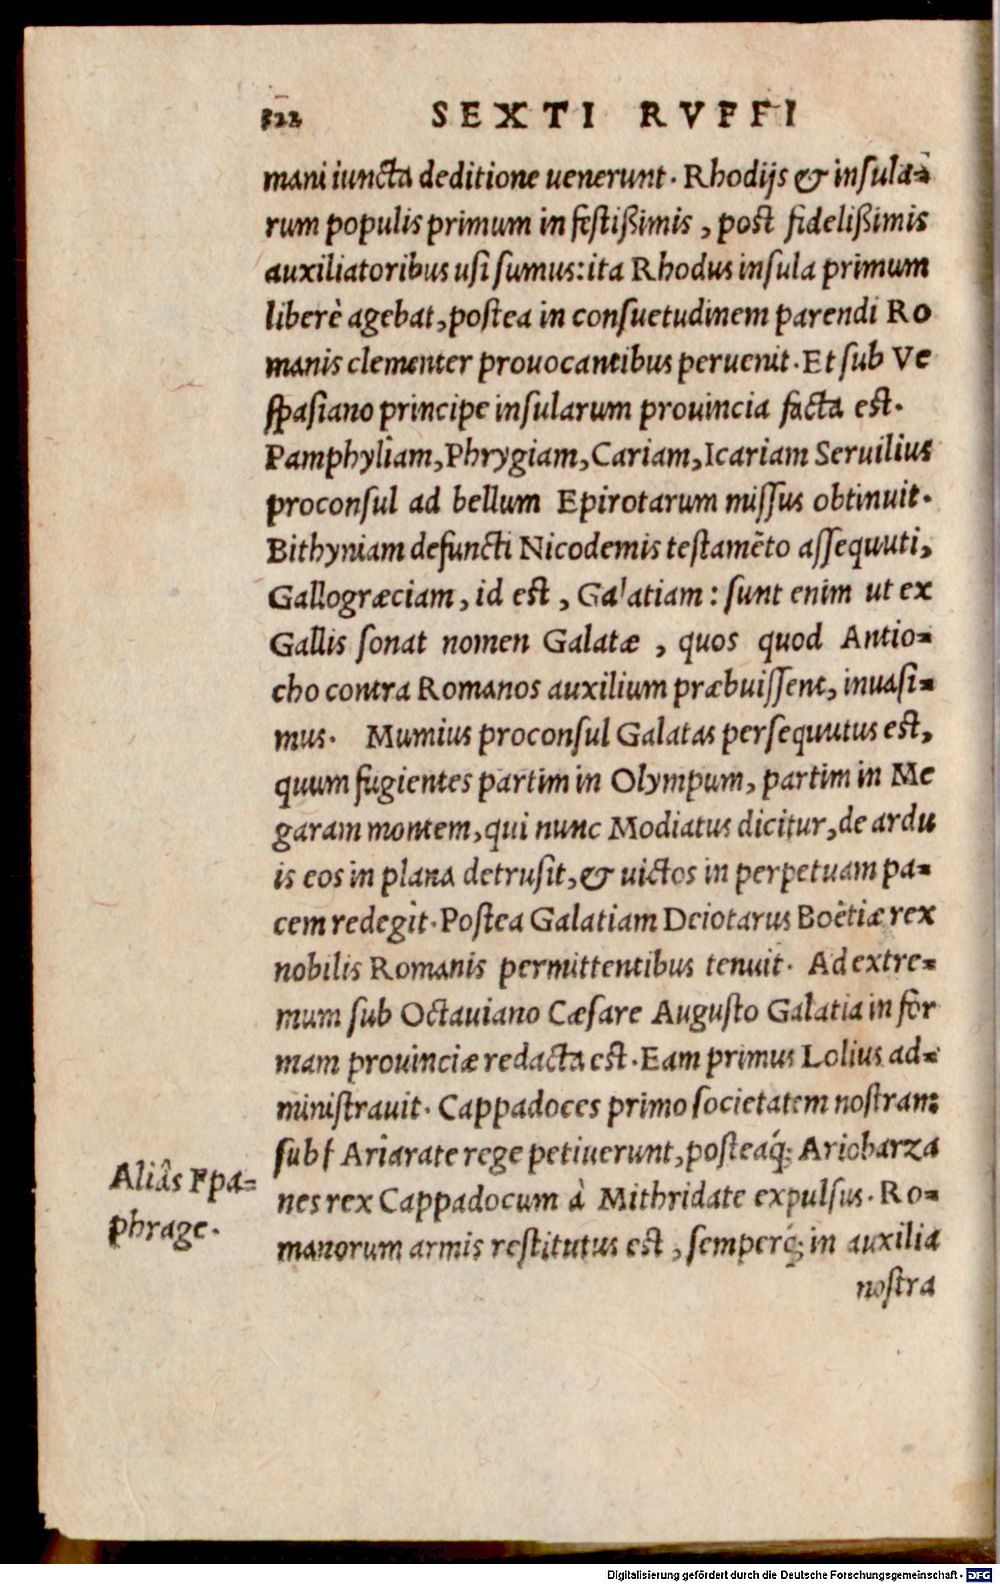 322 SEXTI RVFFI
mani iuncta deditione uenerunt. Rhodijs & insula=
rum populis primum infestißimis, post fidelißimis
auxiliatoribus usi sumus: ita Rhodus insula primum
liberè agebat, postea in consuetudinem parendi Ro
manis clementer prouocantibus peruenit. Et sub Ve
spasiano principe insularum prouincia facta est.
Pamphyliam, Phrygiam, Cariam, Icariam Seruilius
proconsul ad bellum Epirotarum missus obtinuit.
Bithyniam defuncti Nicodemis testamēto assequuti,
Gallogræciam, id est, Galatiam: sunt enim ut ex
Gallis sonat nomen Galatæ, quos quod Antio=
cho contra Romanos auxilium præbuissent, inuasi=
mus. Mumius proconsul Galatas persequutus est,
quum fugientes partim in Olympum, partim in Me
garam montem, qui nunc Modiatus dicitur, de ardu
is eos in plana detrusit, & uictos in perpetuam pa=
cem redegit. Postea Galatiam Deiotarus Boëtiæ rex
nobilis Romanis permittentibus tenuit. Ad extre=
mum sub Octauiano Cæsare Augusto Galatia in for
mam prouinciæ redacta est. Eam primus Lolius ad=
ministrauit. Cappadoces primo societatem nostram:
sub† Ariarate rege petiuerunt, posteaq́; Ariobarza
nes rex Cappadocum à Mithridate expulsus. Ro=
manorum armis restitutus est, semperq́; in auxilia
nostra
Aliâs Epa=
phrage.
Digitalisierung gefördert durch die Deutsche Forschungsgemeinschaft - DFG